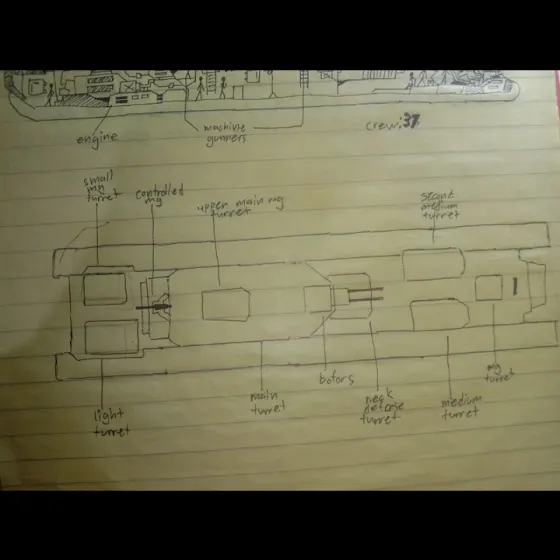 engine
machine
gunners
crew:37
small
mg
turret
controlled
mg
upper main mg
turret
second
medium
turret
light
turret
main
turret
bofors
neck
defense
turret
medium
turret
mg
turret